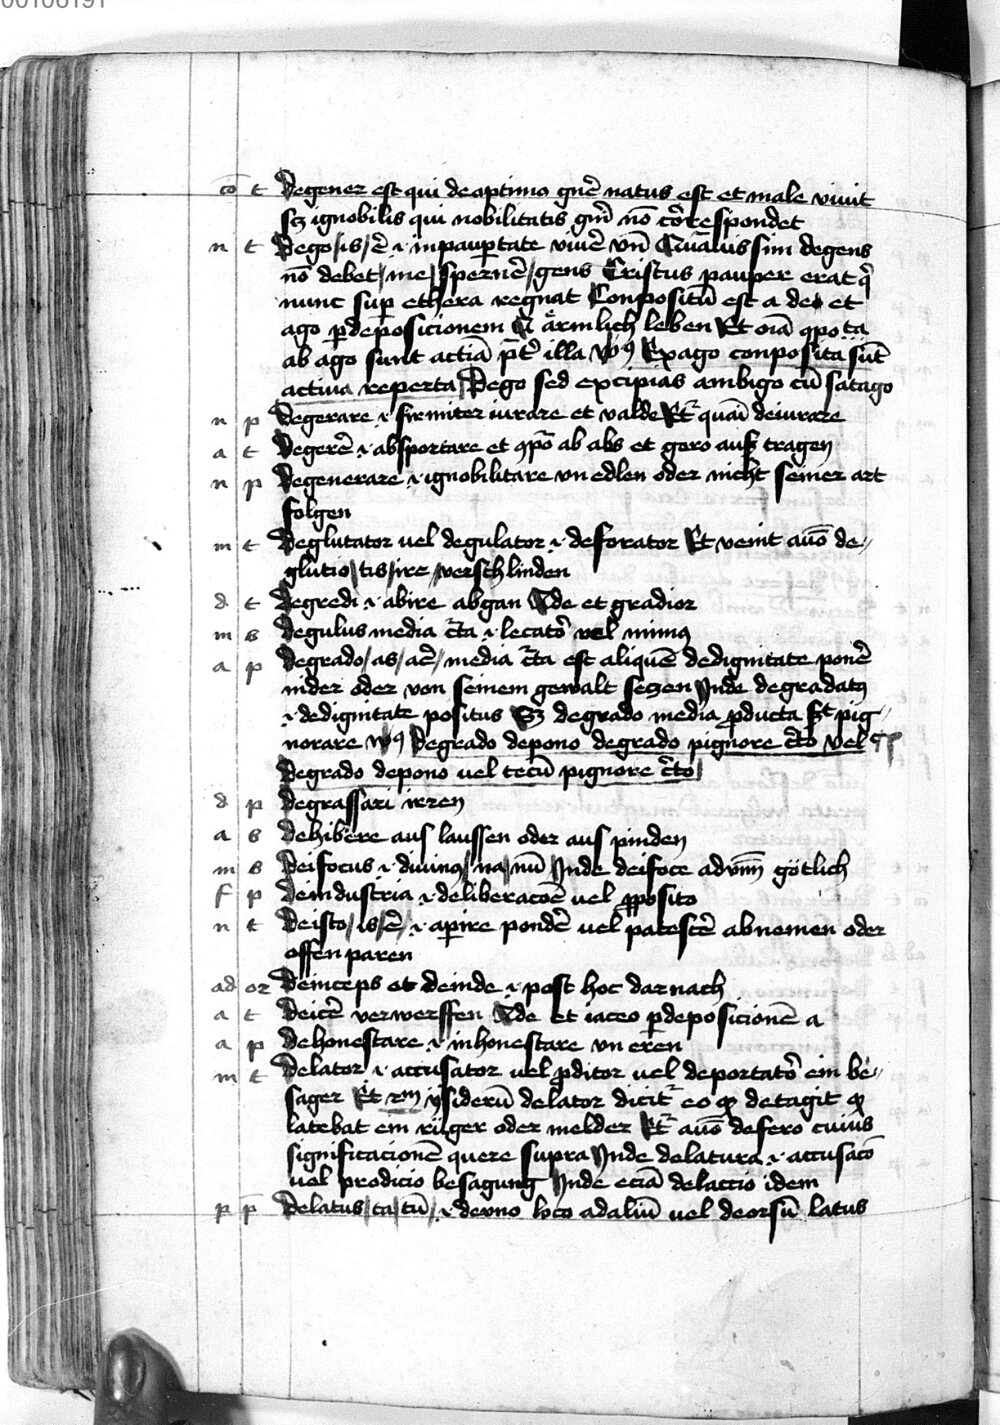 00106191
cō t Degener est qui de aptimo gnē natus est et male viuit
sʒ ignobilis qui nobilitatis gnī nō cōrespondet
n t Dego/is/ē .i. in paupertate viuē vn̄ Cruālis sim degens
nō debet/me/spernē/gens Cristus pauper erat q̄
nunc sup ethera regnat Conpositū est a de et
ago p deposicionem armlich leben Et oīa 9posita
ab ago sunt actiā p̄t illa v9 Ex ago conposita sūt
actiua reperta Dego sed excipias ambigo cū satago
n p Degerare .i. firmiter iurare et valde Et quasi deiurare
a t Degerē .i. absportare et 9pō ab abs et gero auß tragen
n p Degenerare .i. ignobilitare vn edlen oder nicht seiner art
folgen
m t Deglutator uel degulator .i. deforator Et venit auō de//
glutio/tis/ire/verschlinden
d t Degredi .i. abire abgan de et gradior
m s Degulus media cr̄ta .i. lecatō vel mimus
a p Degrado/as/aē/media cr̄ta est aliquē de dignitate ponē
nider oder von seinem gewalt seczen Jnde degradatus
.i. de dignitate positus Sʒ degrado media p̄ducta st pig//
norare v9 Degrado depono degrado pignore cr̄to vel
Degrado depono uel tecū pignore cr̄to
d p Degrassari irren
a s Dehibere aus laussen oder aus pinden
m s Deifocus .i. diuinus/na/nū Jnde deifoce aduīm götlich
f p Deindustria .i. deliberacōē uel pposito
n t Deisto/is/ē/ .i. apire pondē uel patescē abnemen oder
offenparen
ad or Deinceps et deinde .i. post hoc darnach
a t Deicē verwerffen de et iaceo p deposicionē a
a p Dehonestare .i. inhonestare vn eren
m t Delator .i. accusator uel p̄ditor uel deportatō ein be//
sager Et ysiderū delator dicit eo q detagit q
latebat ein rüger oder melder Et auō defero cuius
significacionē quere supra Jnde delatura .i. accusacō
uel prodicio besagung Jnde eciā delaccio idem
p p̄ Delatus/ta/tū/ .i. de vno loco ad aliū uel deorsū latus